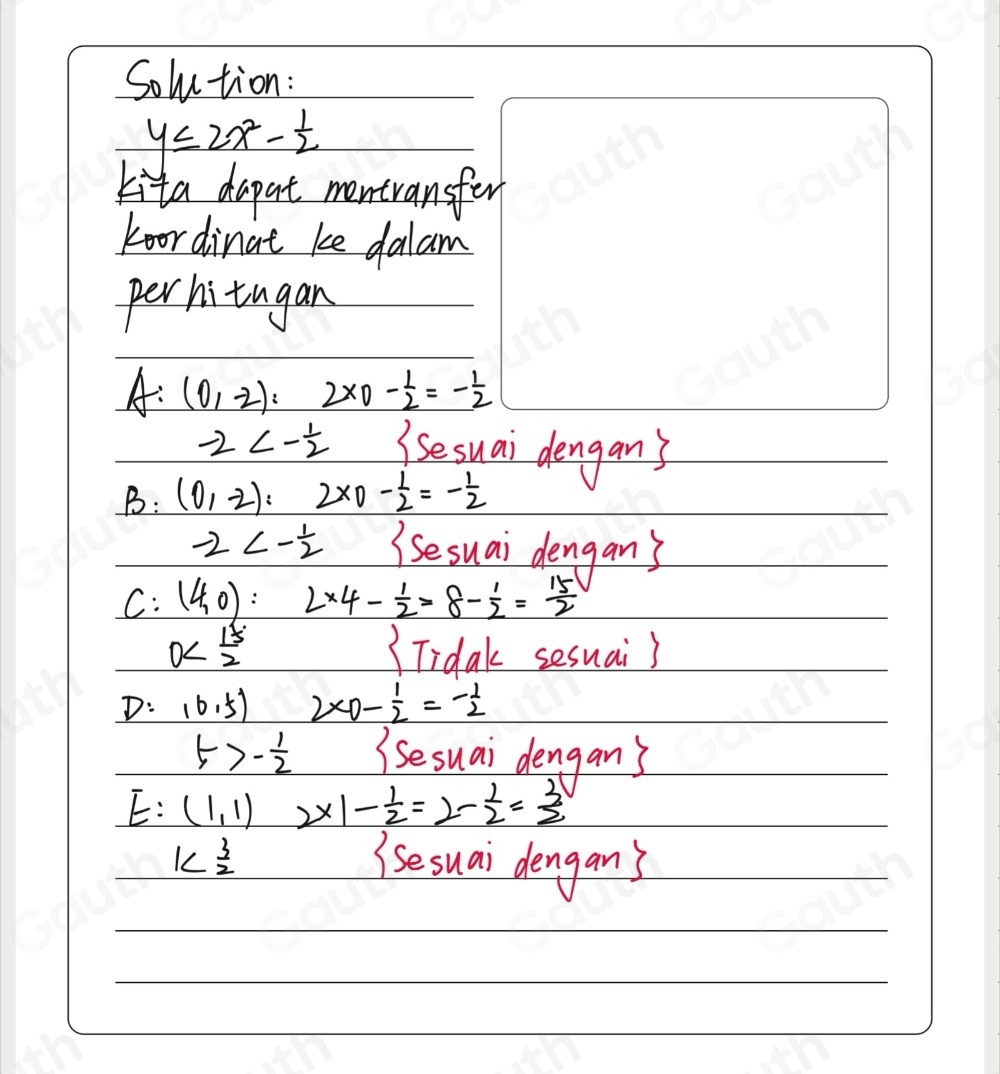 Solution:
y ≤ 2x² - 1/2
kita dapat mentransfer
koordinat ke dalam
perhitugan
A: (0, -2): 2×0 - 1/2 = -1/2
-2 < -1/2 {Sesuai dengan}
B: (0, -2): 2×0 - 1/2 = -1/2
-2 < -1/2 {Sesuai dengan}
C: (4,0): 2×4 - 1/2 = 8 - 1/2 = 15/2
0 < 15/2 {Tidak sesuai}
D: (0,5) 2×0 - 1/2 = -1/2
5 > -1/2 {Sesuai dengan}
E: (1,1) 2×1 - 1/2 = 2 - 1/2 = 3/2
1 < 3/2 {Sesuai dengan}
Gauth